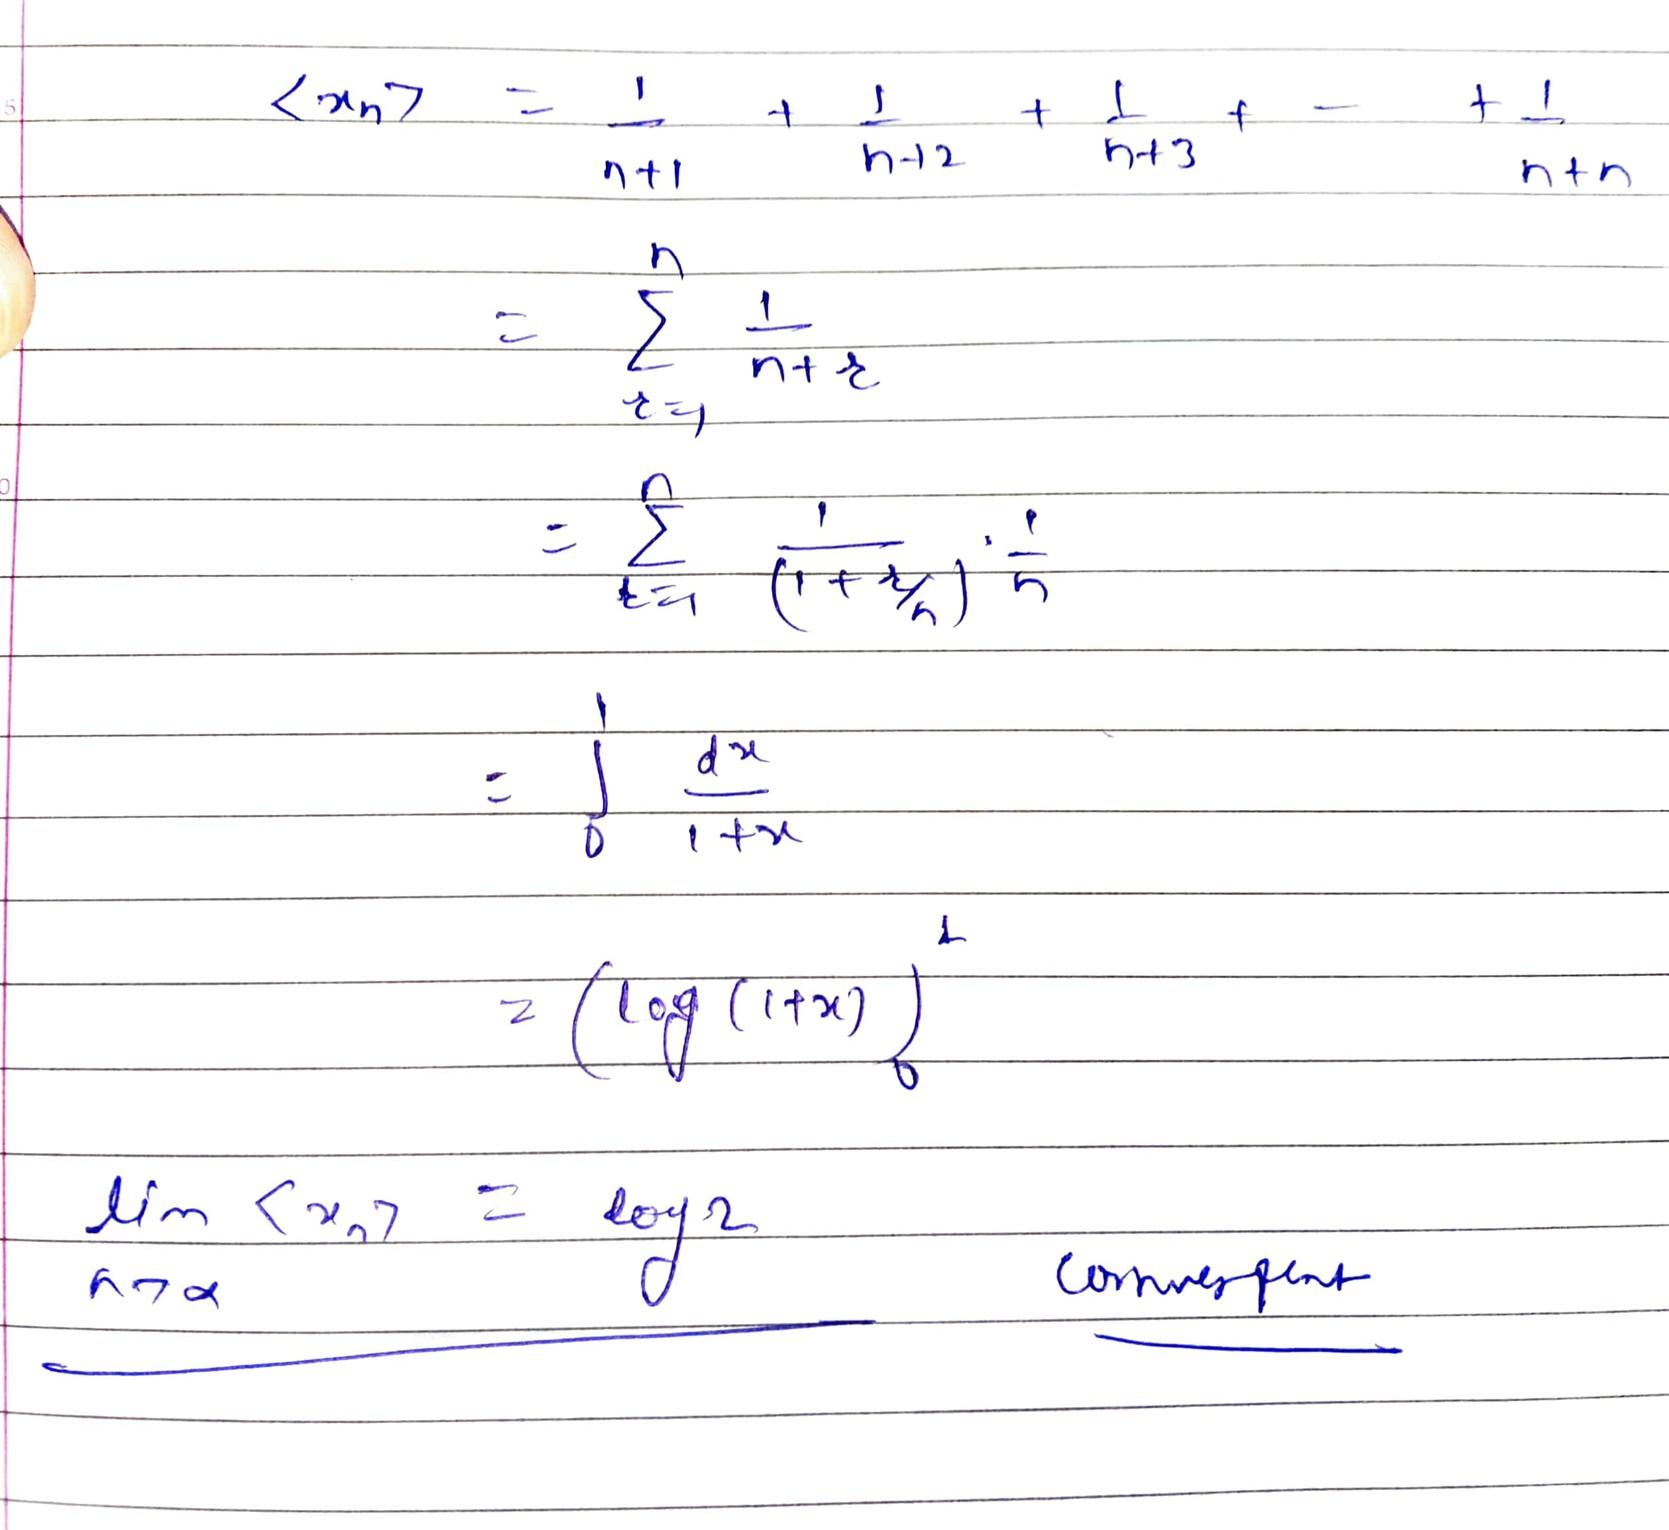 <xn> = 1/(n+1) + 1/(n+2) + 1/(n+3) + - + 1/(n+n)
= n∑r=1 1/(n+r)
= n∑r=1 1/(1+r/n) · 1/n
= ∫₀¹ dx/(1+x)
= (log (1+x))₀¹
lim n→∝ <xn> = log 2
convergent